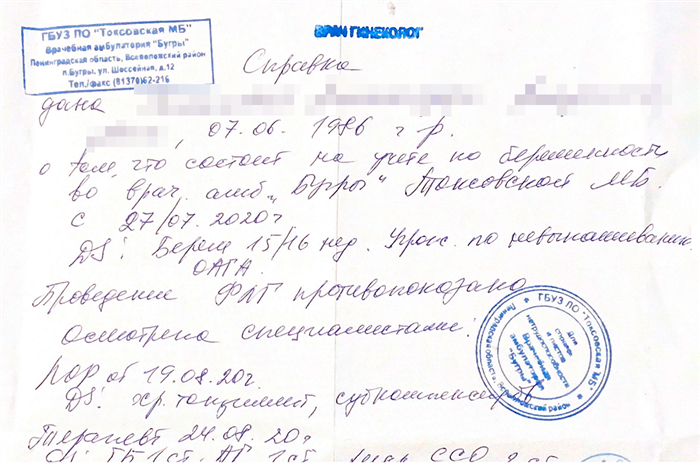 ГБУЗ ЛО "Токсовская МБ"
Врачебная амбулатория "Бугры"
Ленинградская область, Всеволожский район
п.Бугры, ул. Шоссейная, д.12
Тел./факс (81370)62-216
ВРАЧ ГИНЕКОЛОГ
Справка
дана
, 07.06. 1986 г р.
о том, что состоит на учете по беременности
во врач. амб. „Бугры" Токсовской МБ.
с 27/07. 2020г
DS: Берем 15/16 нед. Угрож. по невынашиванию.
ОАГА.
Проведение ФЛГ противопоказано
Осмотрена специалистами:
ЛОР от 19.08.20г.
DS: хр. тонзиллит, субкомпенсир
Терапевт 24.08.20г
ГБ 1 ст. АГ 1 ст. ССО 2 ст
ГБУЗ ЛО "Токсовская МБ"
Ленинградская обл., Всеволожский район
Для
справок
и листков
нетрудоспособности
Врачебная
амбулатория
"Бугры"